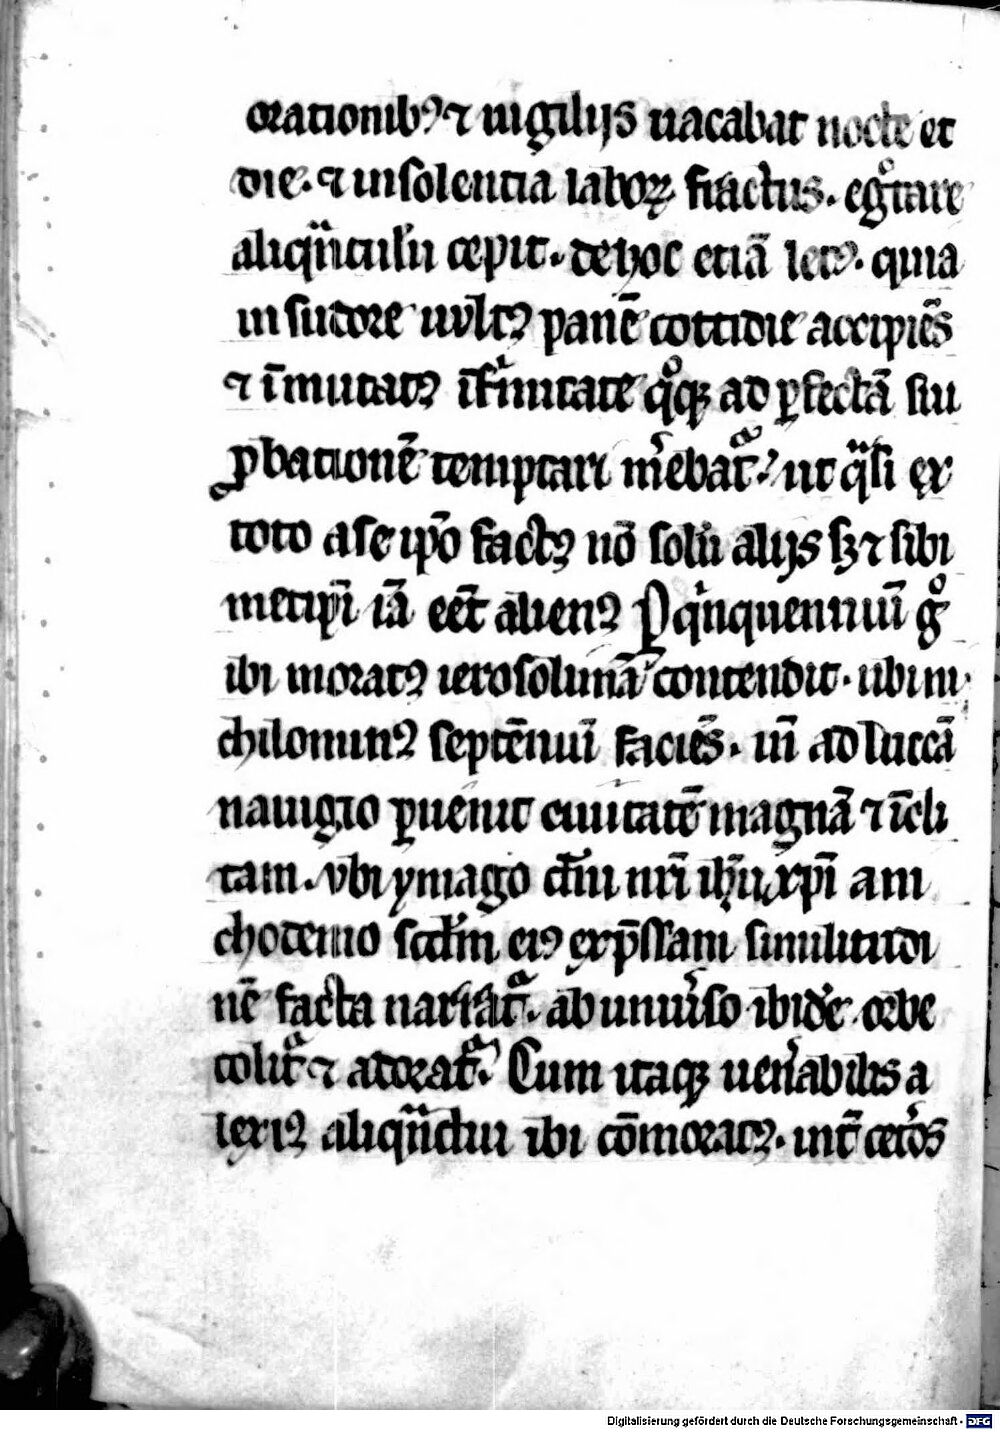 orationib⁹ ⁊ uigilijs uacabat nocte et
die. ⁊ insolentia laboꝝ fractus. egͦtare
aliqͣntulū cepit. de hoc etiā let⁹. quia
in sudore uult⁹ panē cottidie accipiēs
⁊ īmutat⁹ īfͥmitate qͦqꝫ ad ꝑfectā sui
ꝓbationē temptari mͤebatᷣ. ut qͣsi ex
toto a se ip̄o fact⁹ nō solū alijs sꝫ ⁊ sibi
metip̄i iā eēt alien⁹ P qͥnquenniū gͦ
ibi morat⁹ ierosolimā contendit. ubi ni
chilomin⁹ septēniū faciēs. in̄ ad luccā
nauigio ꝑuenit ciuitatē magnā ⁊ īcli
tam. vbi ymago dn̄i nr̄i ih̄u xp̄i am
chodemo scd̄m ei⁹ exp̄ssam similitudi
nē facta narratᷣ. ab uniuͤso ibidē orbe
colitᷣ ⁊ adoratᷣ. Cum itaqꝫ uenͤabilis a
lexi⁹ aliqͣndiu ibi cōmorat⁹. int̄ cetͤos